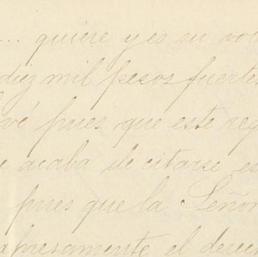 ... quiere y es su vol
diez mil pesos fuertes
pues que este reg
acaba de citarse e
pues que la Señor
el derec